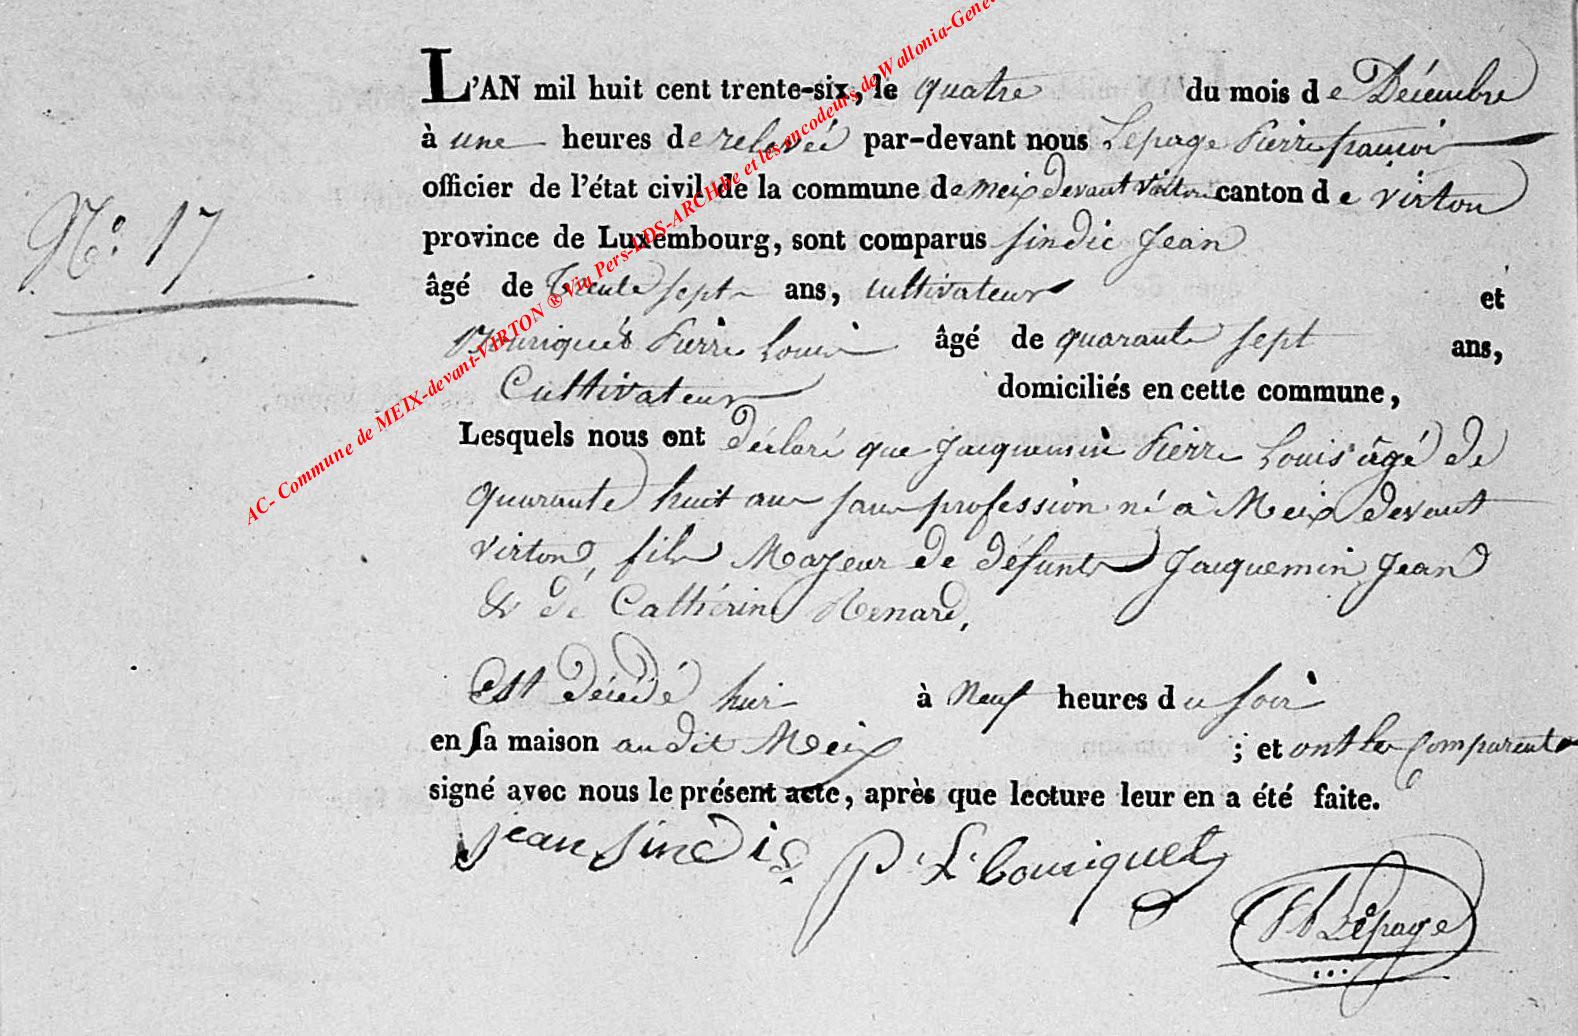 L'AN mil huit cent trente-six, le quatre du mois de Décembre
à une heures de relevée par-devant nous Lepage Pierre françois
officier de l'état civil de la commune de Meix devant Virton canton de virton
province de Luxembourg, sont comparus Sindic Jean
âgé de Trente sept ans, cultivateur et
Bouriquet Pierre Louis âgé de quarante sept ans,
Cultivateur domiciliés en cette commune,
Lesquels nous ont déclaré que Jacquemin Pierre Louis âgé de
quarante huit ans sans profession né à Meix devant
virton, fils Majeur de défunts Jacquemin Jean
& de Cathérine Renard,
est décédé hier à Neuf heures du soir
en sa maison audit Meix ; et ont les Comparents
signé avec nous le présent acte, après que lecture leur en a été faite.
Jean Sindic P. L. Bouriquet
Lepage
N° 17
AC- Commune de MEIX-devant-VIRTON ® Via Pers-LDS-ARCH.be et les encodeurs de Wallonia-Gene